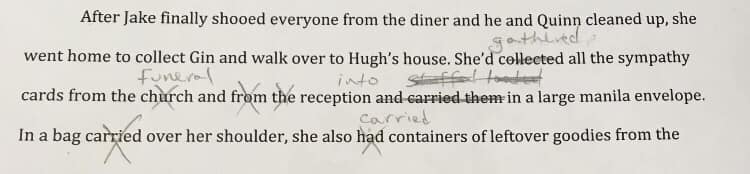 After Jake finally shooed everyone from the diner and he and Quinn cleaned up, she
gathered
went home to collect Gin and walk over to Hugh's house. She'd collected all the sympathy
funeral into stuffed loaded
cards from the church and from the reception and carried them in a large manila envelope.
carried
In a bag carried over her shoulder, she also had containers of leftover goodies from the